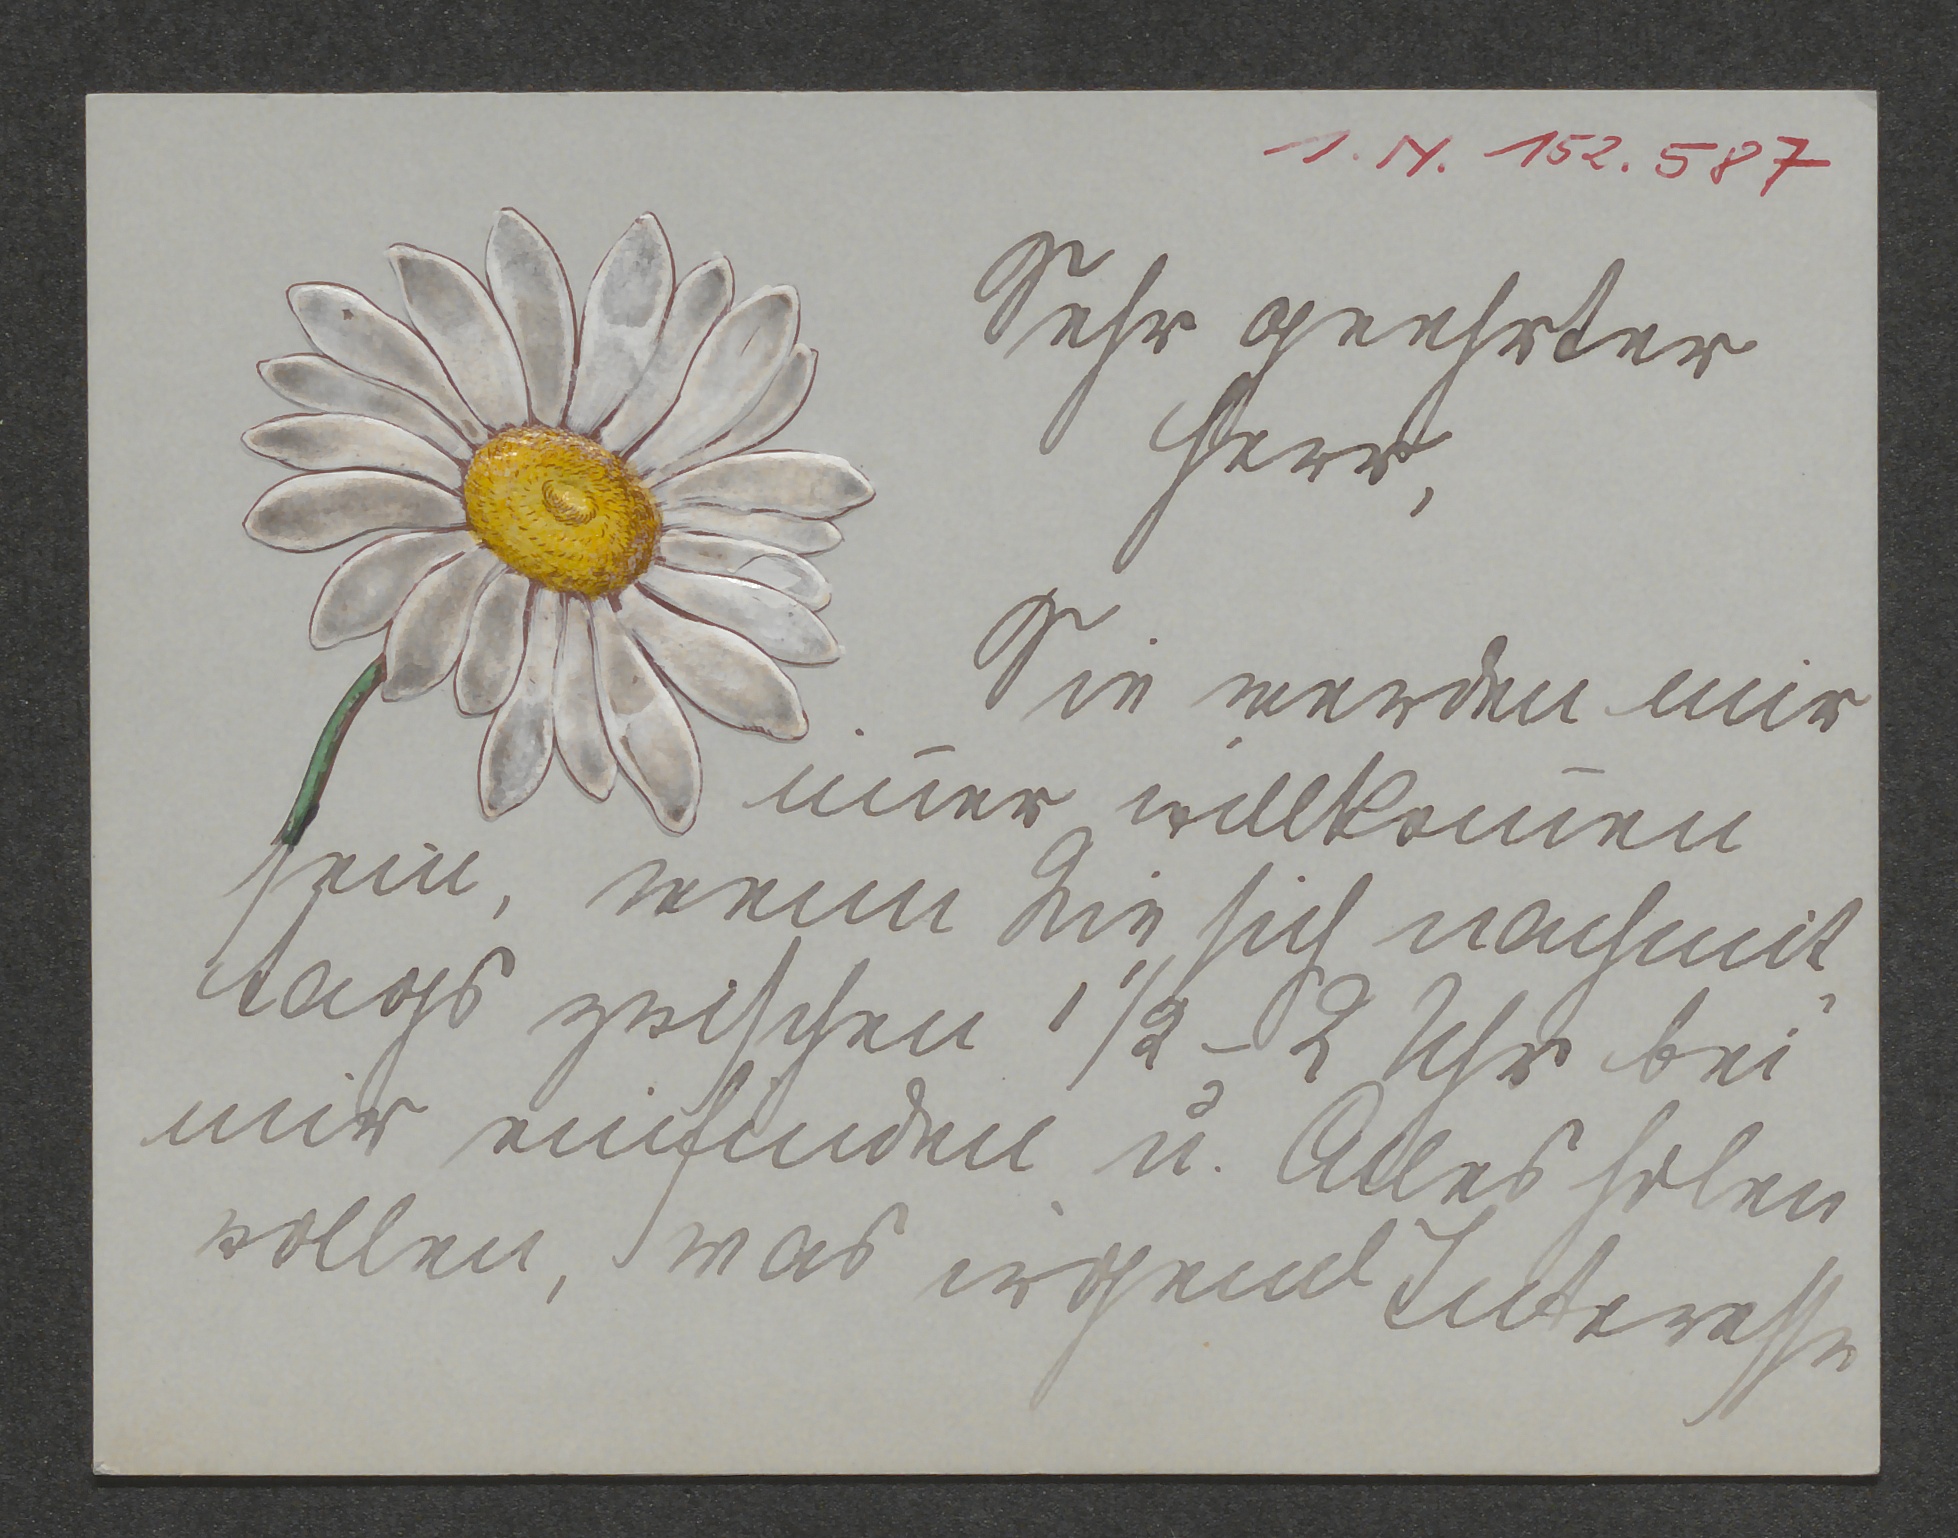 I. N. 152.587
Sehr geehrter
Herr,
Sie werden mir
im̅er willkom̅en
sein, wenn Sie sich nachmit
tags zwischen 1 1/2 – 2 Uhr bei
mir einfinden u. Alles holen
wollen, was irgend Interesse